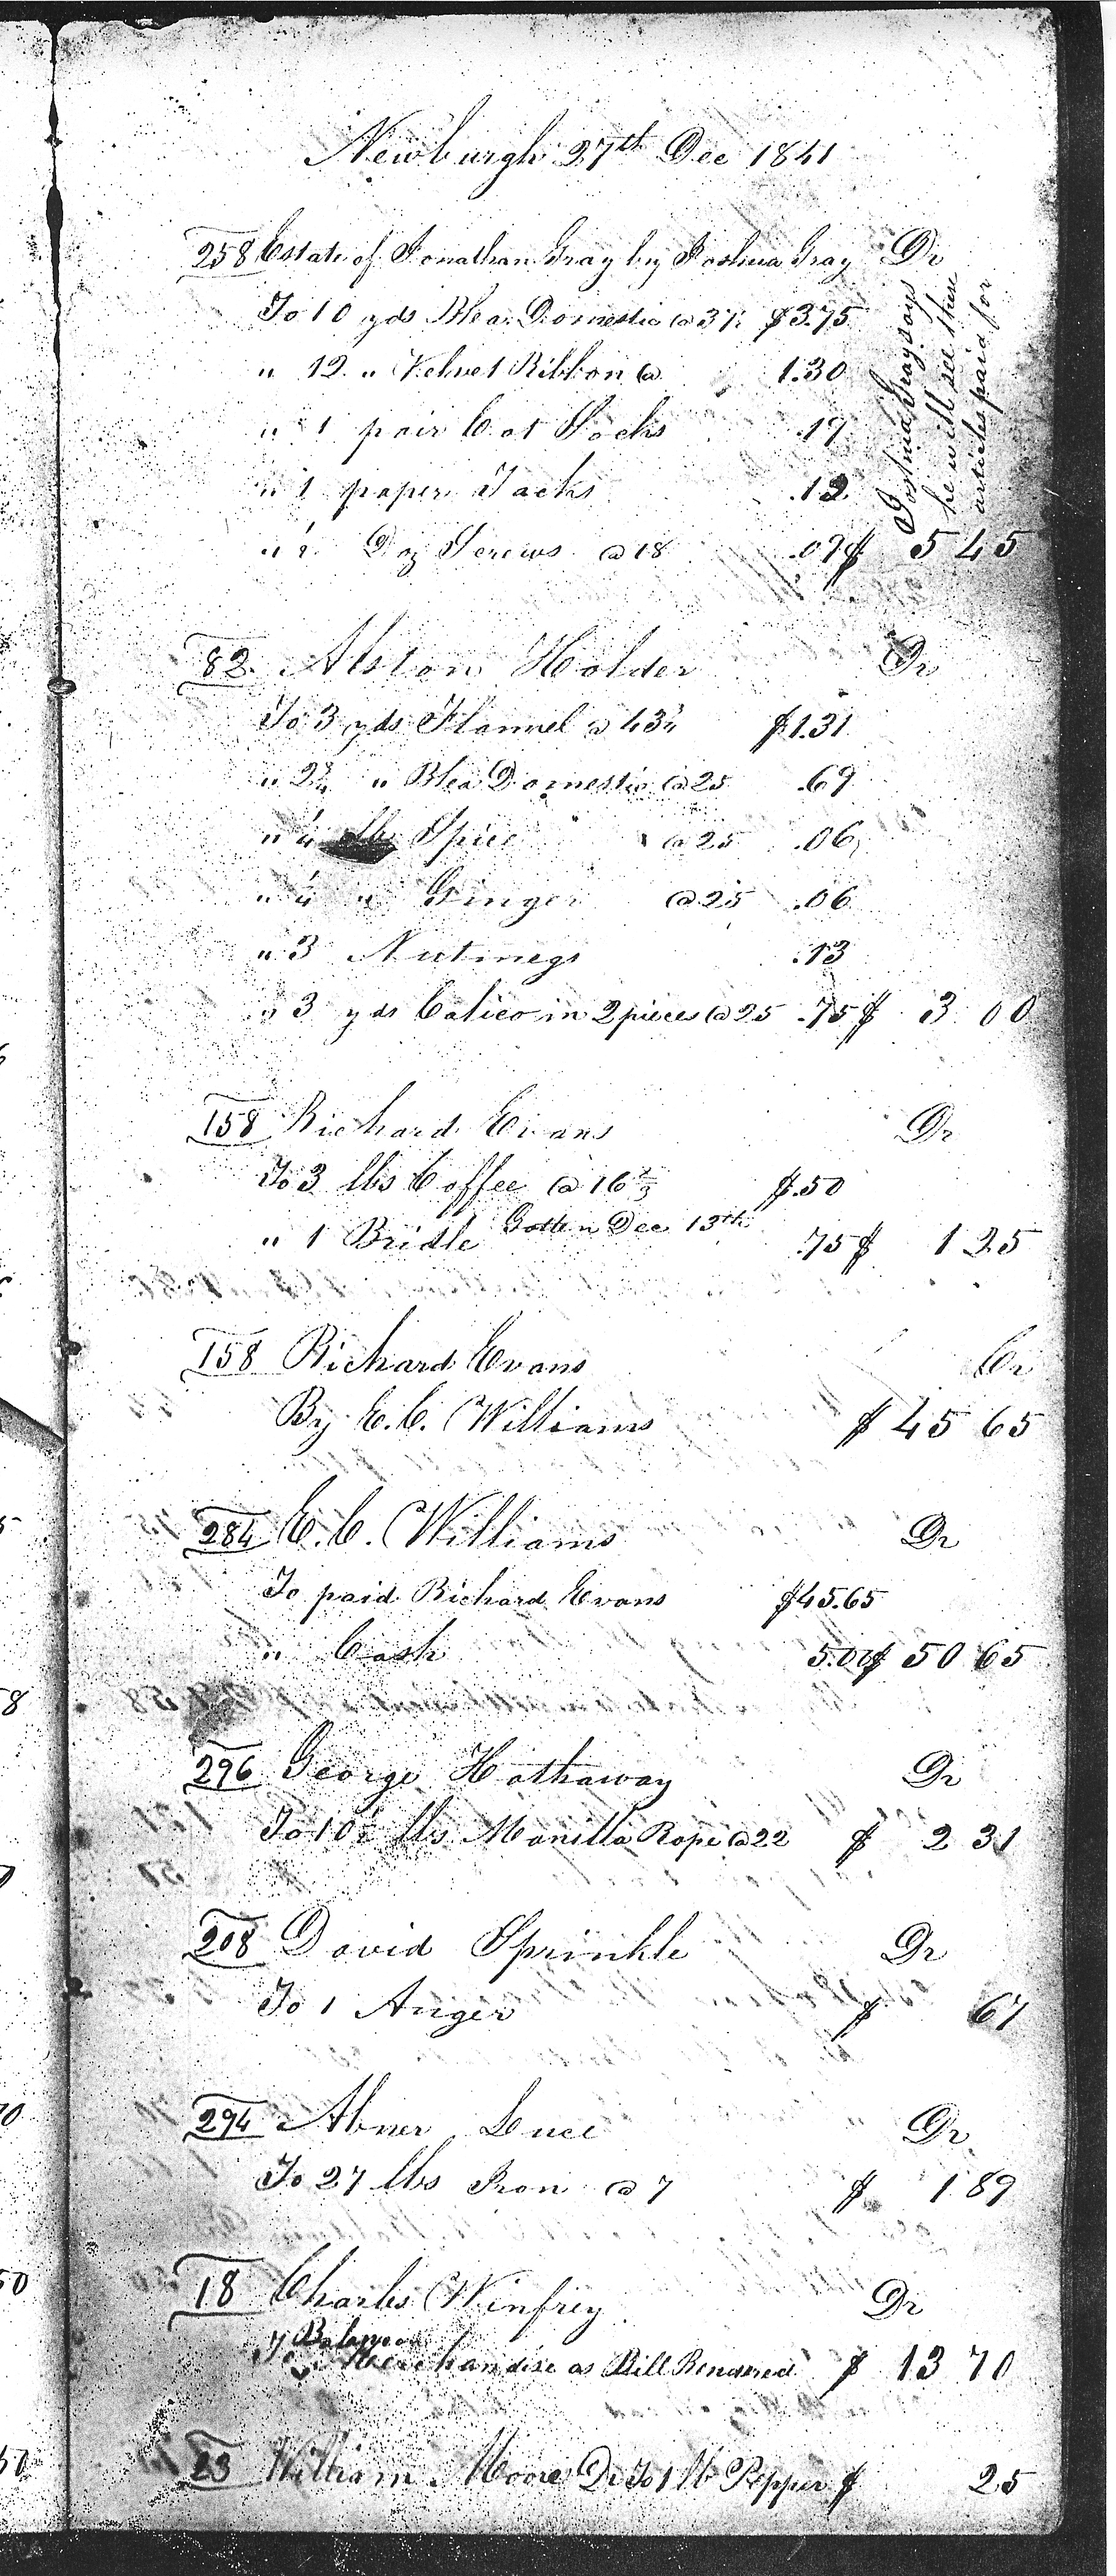 Newburgh 27th Dec 1841
258 Estate of Jonathan Gray by Joshua Gray Dr
To 10 yds Blea. Domestic @ 37½ $3.75
" 12 " Velvet Ribbon @ 1.30
" 1 pair Cot Socks .19
" 1 paper Tacks .12
" ½ Doz Screws @ 18 .09 $ 5 45
Joshua Gray says
he will see these
articles paid for
82 Alston Holder Dr
To 3 yds Flannel @ 43¾ $1.31
" 2¾ " Blea Domestic @ 25 .69
" ¼ lb Spice @ 25 .06
" ¼ " Ginger @ 25 .06
" 3 Nutmegs .13
" 3 yds Calico in 2 pieces @ 25 .75 $ 3 00
158 Richard Evans Dr
To 3 lbs Coffee @ 16⅔ $.50
" 1 Bridle Gotten Dec 13th .75 $ 1 25
158 Richard Evans Cr
By E. C. Williams $ 45 65
284 E. C. Williams Dr
To paid Richard Evans $45.65
" Cash 5.00 $ 50 65
296 George Hathaway Dr
To 10½ lbs Manilla Rope @ 22 $ 2 31
208 David Sprinkle Dr
To 1 Auger $ 67
294 Abner Luce Dr
To 27 lbs Iron @ 7 $ 1 89
18 Charles Winfrey Dr
To Balance Merchandise as Bill Rendered $ 13 70
23 William Moore Dr To 1 lb Pepper $ 25